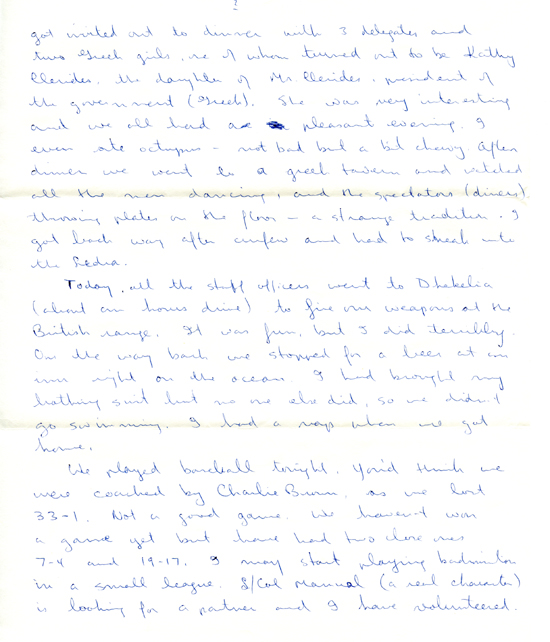 2
got invited out to dinner with 3 delegates and
two Greek girls, one of whom turned out to be Kathy
Clerides, the daughter of Mr. Clerides, president of
the government (Greek). She was very interesting
and we all had a pleasant evening. I
even ate octopus - not bad but a bit chewy. After
dinner we went to a greek tavern and watched
all the men dancing, and the spectators (diners)
throwing plates on the floor - a strange tradition. I
got back way after curfew and had to sneak into
the Ledra.
Today, all the staff officers went to Dhekelia
(about an hours drive) to fire our weapons at the
British range. It was fun, but I did terribly.
On the way back we stopped for a beer at an
inn right on the ocean. I had brought my
bathing suit but no one else did, so we didn't
go swimming. I had a nap when we got
home.
We played baseball tonight. You'd think we
were coached by Charlie Brown, as we lost
33-1. Not a good game. We haven't won
a game yet but have had two close ones
7-4 and 19-17. I may start playing badminton
in a small league. L/Col Manual (a real character)
is looking for a partner and I have volunteered.